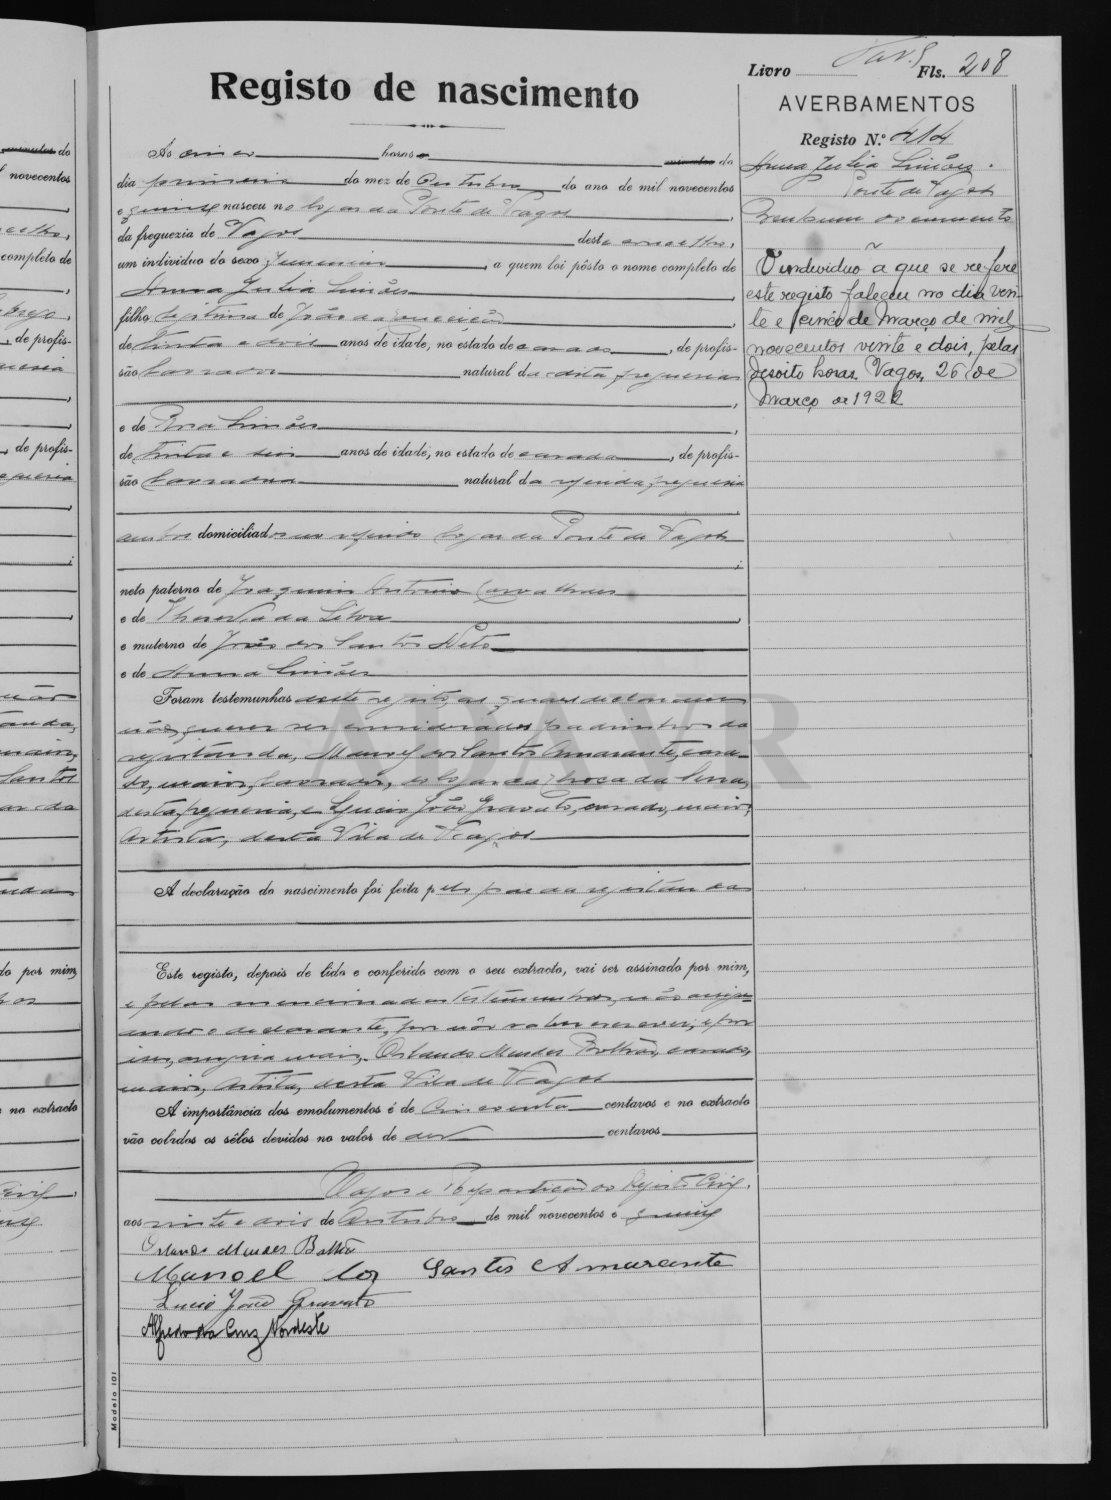 Livro Fls. 208
Registo de nascimento
AVERBAMENTOS
Registo N.º 414
Anna Julia Simões.
Ponte de Vagos
Nenhum documento
O individuo a que se refere
este registo faleceu no dia vin-
te e cinco de Março de mil
novecentos vinte e dois, pelas
desoito horas. Vagos, 26 de
Março de 1922
Ás cinco horas do
dia primeiro do mez de Outubro do ano de mil novecentos
e quinze nasceu no logar da Ponte de Vagos,
da freguezia de Vagos deste concelho,
um individuo do sexo femenino, a quem foi pôsto o nome completo de
Anna Julia Simões,
filha legitima de João da Conceição
de trinta e dois anos de idade, no estado de casado, de profis-
são lavrador natural da dita freguesia,
e de Rosa Simões,
de trinta e seis anos de idade, no estado de casada, de profis-
são lavradora natural da referida freguesia
ambos domiciliados no referido logar da Ponte de Vagos;
neto paterno de Joaquim Antonio Carvalhaes
e de Thereza da Silva,
e materno de João dos Santos Neto
e de Anna Simões
Foram testemunhas deste registo, as quaes declararam
não querer ser considerados padrinhos da
registanda, Manoel dos Santos Amarante, casa-
do, maior, lavrador, do logar da Choca da Serra,
desta freguesia, e Lucio João Gravato, casado, maior,
Artista, desta Vila de Vagos
A declaração do nascimento foi feita pelo pae da registanda
Este registo, depois de lido e conferido com o seu extracto, vai ser assinado por mim,
e pelas mencionadas testemunhas, não assign-
ando o declarante, por não saber escrever, e por
isso, assigna mais, Orlando Mendes Bolhão, casado,
maior, Artista, desta Vila de Vagos
A importância dos emolumentos é de cincoenta centavos e no extracto
vão colados os sêlos devidos no valor de dez centavos
Vagos e Repartição do Registo Civil.
aos vinte e dois de Outubro de mil novecentos e quinze
Orlando Mendes Bolhão
Manoel dos Santos Amarante
Lucio João Gravato
Alfredo da Cruz Nordeste
Modelo 101
ADAVR